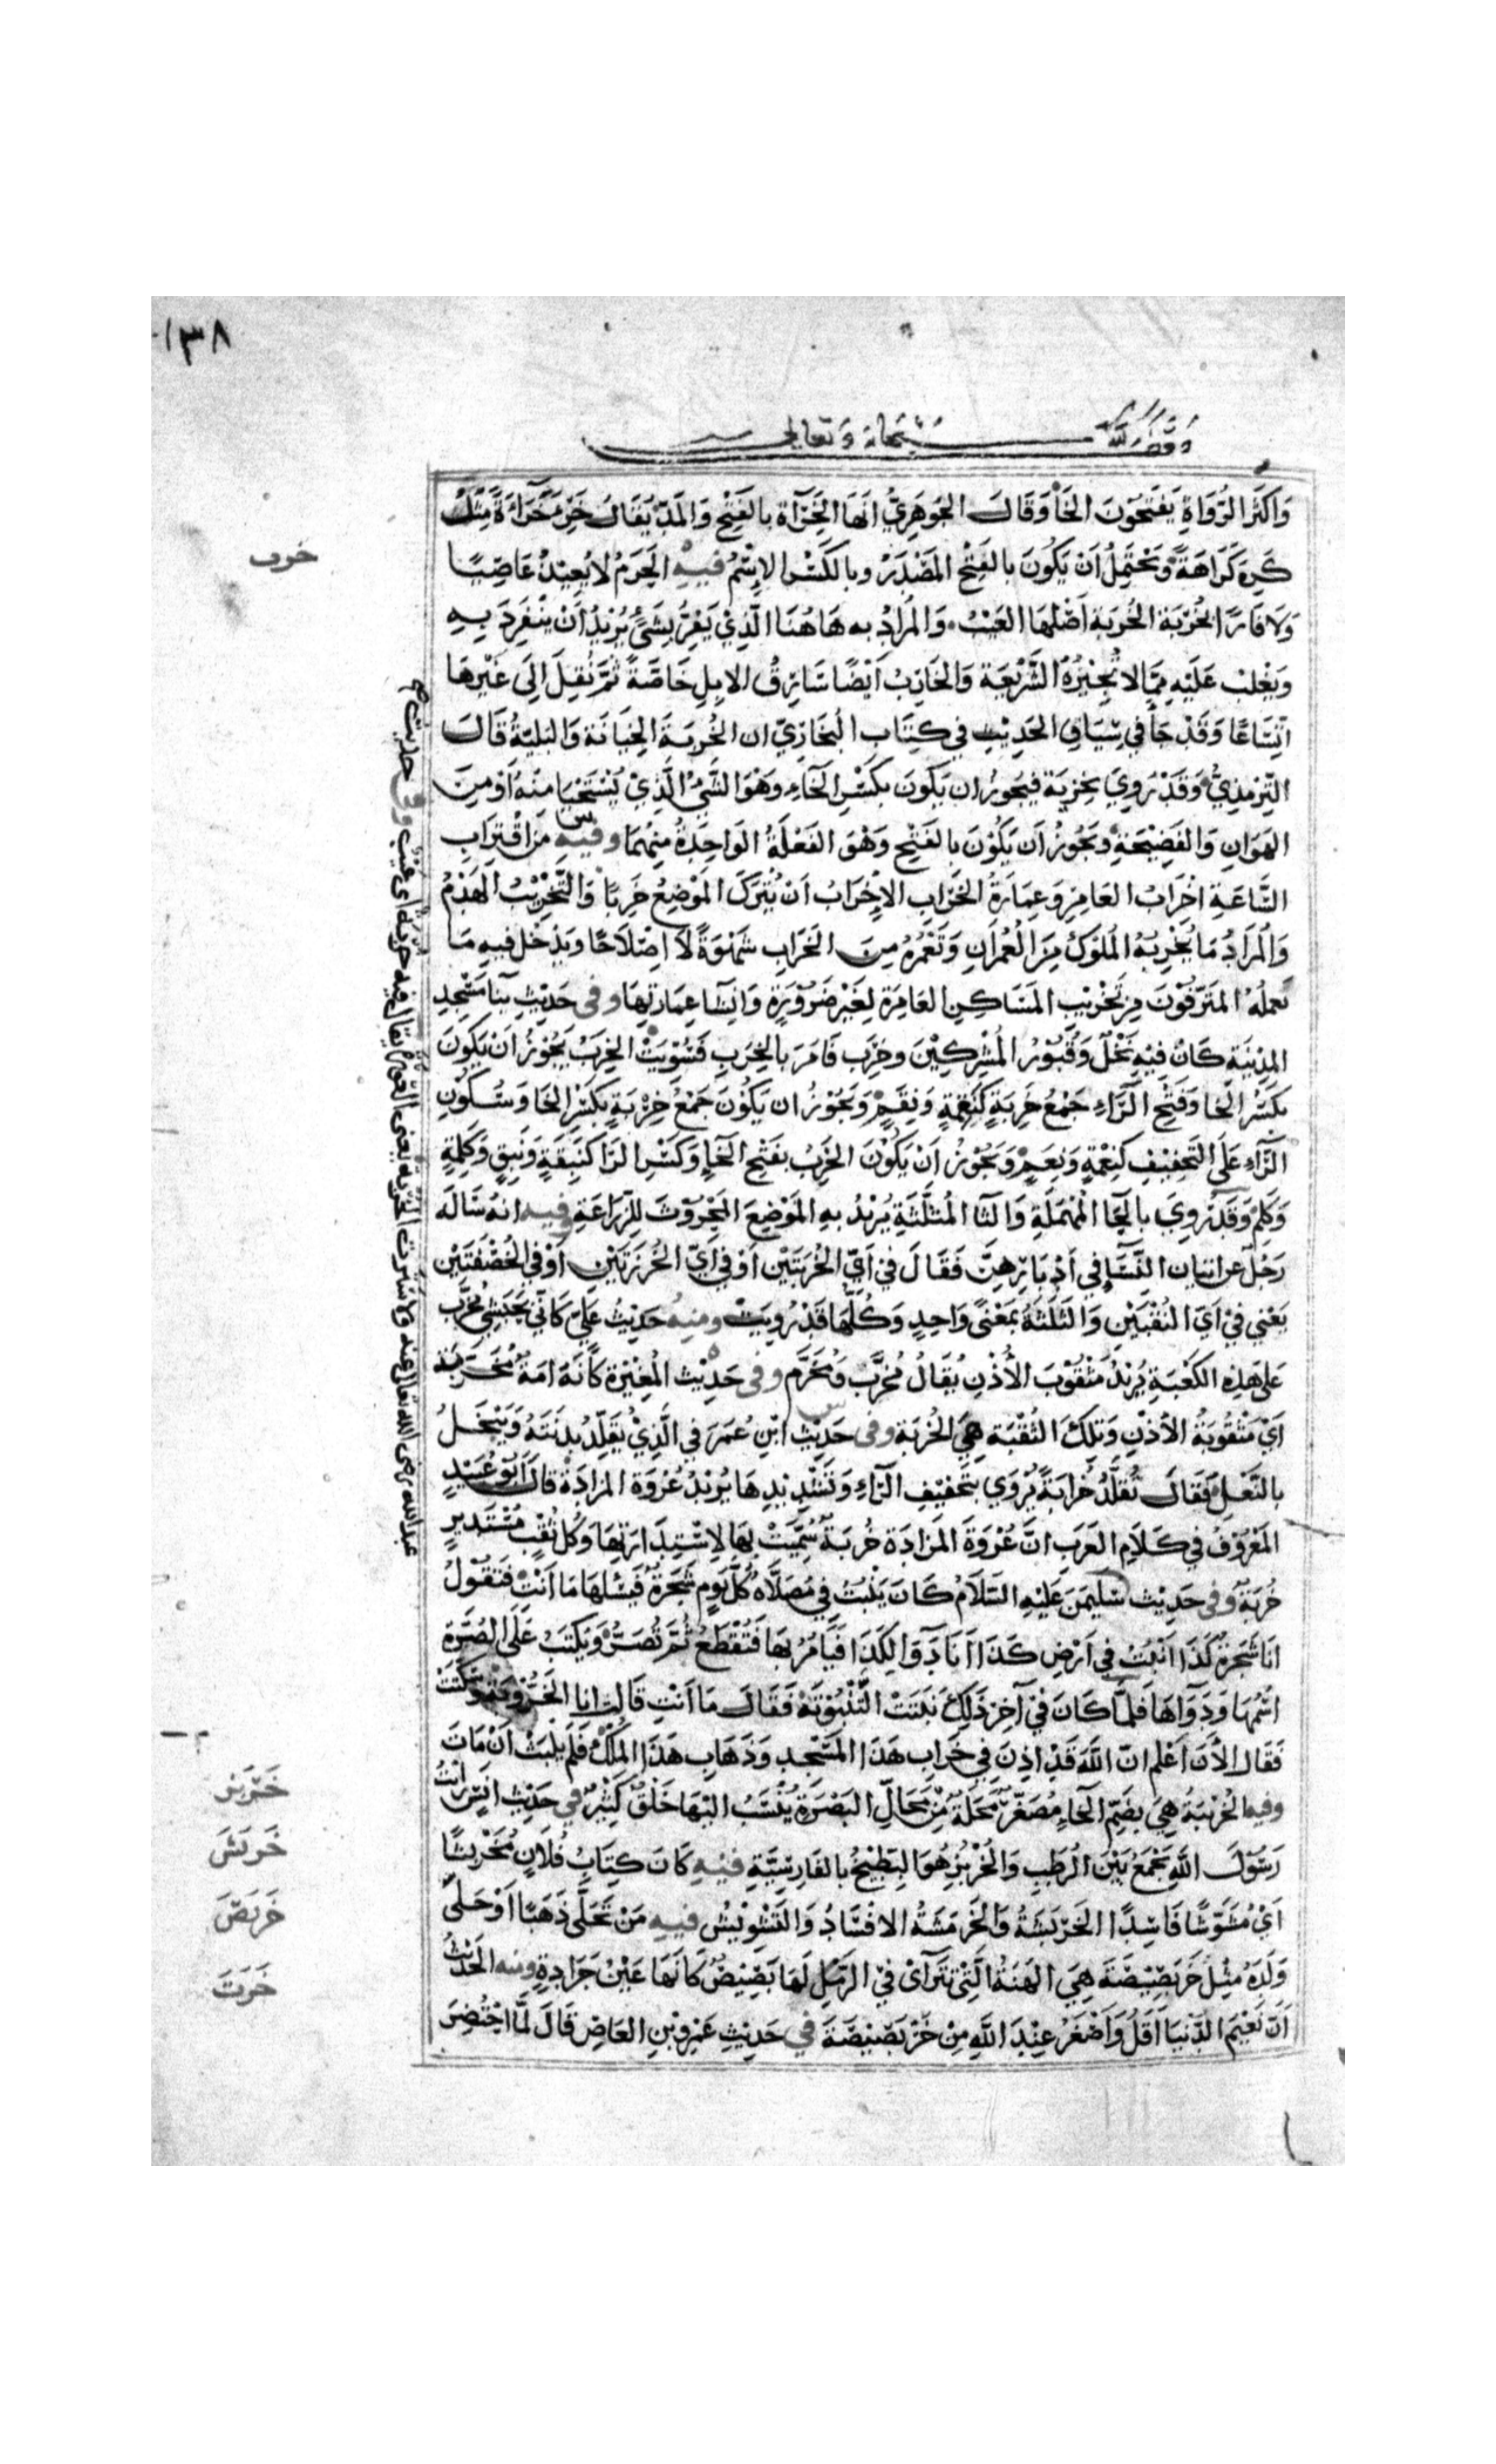 ١٣٨
وقف لله سبحانه وتعالى
وَاَكثَر الرُّوَاةِ يَفتَحُونَ الخَاْ وَقَالَ الجَوهَرِيُّ اَنهَا الخَرَآة بالفَتْح وَالمَدّ يُقَالُ خَرِئَ خَرَآءَةً مِثْلُ
كَرِهَ كَرَاهَةً وَيَحْتَمِلُ اَنْ يَكُونَ بالفَتْح المَصْدَرُ وبالكَسْر الاِسْمُ فيهِ الحَرَمُ لا يُعِيذُ عَاصِيًا
وَلا فَارًّا بخُرْبَة الخُربَة اَصْلهَا العَيْبُ وَالمُرَادُ به هَاهُنَا الَّذِيْ يَفِرُّ بشَيْءٍ يُرِيْدُ اَنْ يَنفَرِدَ بِهِ
وَيَغْلِب عَلَيْه مِمَّا لا تُجِيْزُهُ الشَّرْيعَة وَالخَارِبُ اَيْضًا سَارِقُ الابِلِ خَاصَّةً ثُمَّ نُقِلَ اِلَى غَيْرهَا
اتِّسَاعًا وَقَدْ جَاْ في سِيَاقِ الحَدِيْثِ في كِتَاب البُخَارِيّ ان الخُربَةَ الجِنَايَة وَالبَلِيَّةُ قَالَ
التِّرمذِيُّ وَقَدْ رُوِيَ بِخِزيَة فيَجوزُ ان يَكُونَ بكَسْرِ الخَاءِ وهْوَ الشَّيْ الَّذِيْ يُسْتَحْيَا مِنْهُ اَوْ مِنَ
الهَوَانِ وَالفَضِيْحَةِ وَيَجُوزُ اَن يَكُوْنَ بالفَتْحِ وَهْوَ الفَعْلَةُ الوَاحِدَةُ مِنهُمَا وفيهِ مِنَ اقْتِرَابِ
السَّاعَةِ اِخْرَابُ العَامِرِ وَعِمَارَةُ الخَرَابِ الاِخْرَابُ اَنْ يُتْرَكَ المَوْضِعُ خَرِبًا وَالتَّخْرِيْبُ الهَدْمُ
وَالْمُرَادُ مَا يُخْرِبُهُ المُلُوكُ مِنَ الْعُمْرَانِ وَتَعْمُرُهُ مِنَ الخَرَابِ شَهْوَةً لَا اِصْلَاحًا وَيَدْخُل فيهِ مَا
يَعمَلُهُ المُترَفُوْنَ مِن تَخْرِيْبِ المَسَاكِنِ العَامِرَةِ لِغَيْر ضَرُوْرَةٍ وَاِنشَا عِمَارَتِهَا وفى حَدِيْثِ بِنَا مَسْجِدِ
المَدِيْنَةِ كَانَ فِيْهِ نَخْلٌ وَقُبُوْرُ المُشْرِكِيْنَ وخِرَب فَاَمَرَ بالخِرَبِ فَسُوِّيَتْ الخِرَبُ يَجُوْزُ اَنْ يَكُوْنَ
بكَسْرِ الخَا وَفَتْحِ الرَّاءِ جَمْعُ خَرِبَةٍ كَنَقِمَةٍ وَنِقَمٍ وَيَجُوْزُ ان يَكُوْنَ جَمْعُ خِرْبَةٍ بِكَسْرِ الخَا وَسُكُوْنِ
الرَّاءِ عَلَى التَخْفِيْفِ كَنِعْمَةٍ وَنِعَمٍ وَيَجُوْزُ اَنْ يَكُوْنَ الخَرِبُ بفَتْحِ الخَاءِ وَكَسْرِ الرَّا كَنَبِقَةٍ وَنَبِقٍ وَكَلِمَةٍ
وَكَلِمٍ وَقَدْ رُوِيَ بالحَآ المُهْمَلَةِ وَالثَّا المُثَلَّثَةِ يُرِيْدُ بهِ المَوْضِعَ المَحْرُوْثَ لِلزِّرَاعَةِ وفيه انهُ سَالَه
رَجُلٌ عن اتيان النِّسَآ في اَدْبَارِهِنَّ فَقَالَ في اَيِّ الخُرْبَتَيْنِ اَوْ في اَيِّ الخُرْزَتَيْنِ اَوْ في الخُصْفَتَيْن
يَعْنِي فيْ اَيِّ الثُقْبَيْنِ وَالثَلَثَةُ بمَعْنًى وَاحِدٍ وَكُلُّهَا قَدْ رُوِيَتْ ومنهُ حَدِيْثُ عَلِيّ كَانِّي بِحَبَشِيٍّ مُخَرَّبٍ
عَلى هٰذِهِ الكَعْبَةِ يُرِيْدُ مَثْقُوْبَ الأُذْنِ يُقَالُ مُخَرَّبٌ وَمُخَرَّم وفى حَدِيْث المُغِيْرَة كَأَنهُ اَمَةٌ مُخَرَّبَة
اَيْ مَثْقُوبَةُ الأُذْنِ وَتِلْكَ الثُقْبَة هِيَ الخُرْبَة وفى حَدِيْثِ ابْنِ عُمَرَ في الَّذِيْ يُقَلِّدُ بَدَنَتَهُ وَيَبْخَلُ
بالنَّعْلِ فَقَالَ تُقَلِّدُ خُرَابَةً يُرْوَى بتَخفيْفِ الرَّاءِ وَتَشْدِيْدِهَا يُرِيْدُ عُرْوَةَ المَزَادَةِ قَالَ اَبُوْ عُبَيْدٍ
المَعْرُوْفُ في كَلَامِ العَرَبِ انَّ عُرْوَةَ المَزَادَة خُربَةٌ سُمِّيَتْ بِهَا لِاسْتِدَارَتِهَا وَكُل ثُقْبٍ مُسْتَدِيْرٍ
خُرْبَةٌ وفى حَدِيْث سُلَيمٰنَ عَلَيْهِ السَّلَامُ كَانَ يَنْبُتُ في مُصَلَّاهُ كُلَّ يَوْمٍ شَجَرَةٌ فَيَسْئَلهَا مَا اَنْتِ فَتَقُوْلُ
اَنَا شَجَرَةُ كَذَا اَنبُتُ في اَرْضِ كَذَا اَنَا دَوَآ لِكَذَا فَيَامُرُ بهَا فَتُقْطَعُ ثُمَّ تُصَرُّ وَيُكْتَبُ عَلَى الصُّرَّةِ
اسْمُهَا وَدَوَاؤُهَا فَلَمَّا كَانَ فيْ آخِرِ ذٰلِكَ نَبَتَتْ اليَنْبُوْتَةُ فَقَالَ مَا اَنْتِ قَالَت انا الخَرُّوْبَةُ وَسَكَتَتْ
فَقَالَ الأٰنَ اَعْلَم انَّ اللهَ قَدْ اَذِنَ فِي خَرَابِ هَذَا المَسْجِدِ وَذَهَابِ هَذَا المُلْكِ فَلَمْ يَلْبَثْ اَنْ مَاتَ
وفيها الخُرَيْبَةُ هِيَ بضَمِّ الخَاءِ مُصَغَّرةً مَحَلَّةٌ مِنْ مَحَالِّ البَصْرَةِ يُنْسَبُ اليْهَا خَلْقٌ كَثِيْرٌ في حَدِيْثِ اَنَسٍ رَأيْتُ
رَسُوْلَ اللهِ يَجْمَعُ بَيْنَ الرُطَبِ وَالخِرْبِزِ هُوَ البِطِّيْخُ بالفَارِسِيَّةِ فيْهِ كَانَ كِتَابُ فُلَانٍ مُخَرْبَشًا
اَيْ مُشَوَّشًا فَاسِدًا الخَرْبَشَةُ وَالخَرْمَشَةُ الافْسَادُ وَالتَشْوِيْشُ فيهِ مَنْ تَحَلَّى ذَهَبًا اَوْ حَلَّى
وَلَدَهُ مِثْلَ خَرْبَصِيْصَةٍ هِيَ الهَنَةُ الَّتِيْ تَتَرَآى فيْ الرَّمْلِ لَهَا بَصِيْصٌ كَأَنَهَا عَيْنُ جَرَادَةٍ ومنه الحَدِيْثُ
اِنَّ نَعِيْمَ الدُّنْيَا اَقَلُّ وَاَصْغَرُ عِنْدَ اللهِ مِنْ خَرْبَصِيْصَةٍ في حَدِيْثِ عَمْرِو بْنِ العَاصِ قَالَ لَمَّا احْتُضِرَ
خرب
خَرْبَز
خَربَشَ
خَربَصَ
خَرَتَ